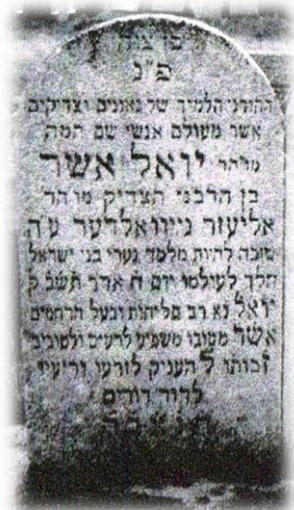 פ״נ
התורני הלמיד של גאונים וצדיקים
אשר מעולם אנשי שם המה
מו״הר יואל אשר
בן הרבני הצדיק מו הר
אליעזר גייוואלדער ע״ה
שזכה להיות מלמד נערי בני ישראל
הלך לעולמו יום ח אדר תשב ק
יואל נא רב סליחות ובעל הרחמים
אשר מטובו משפיע לרעים ולטובים
זכותו ל העניק לזרעו וריעיו
לדור דורים
ת נ צ ב ה